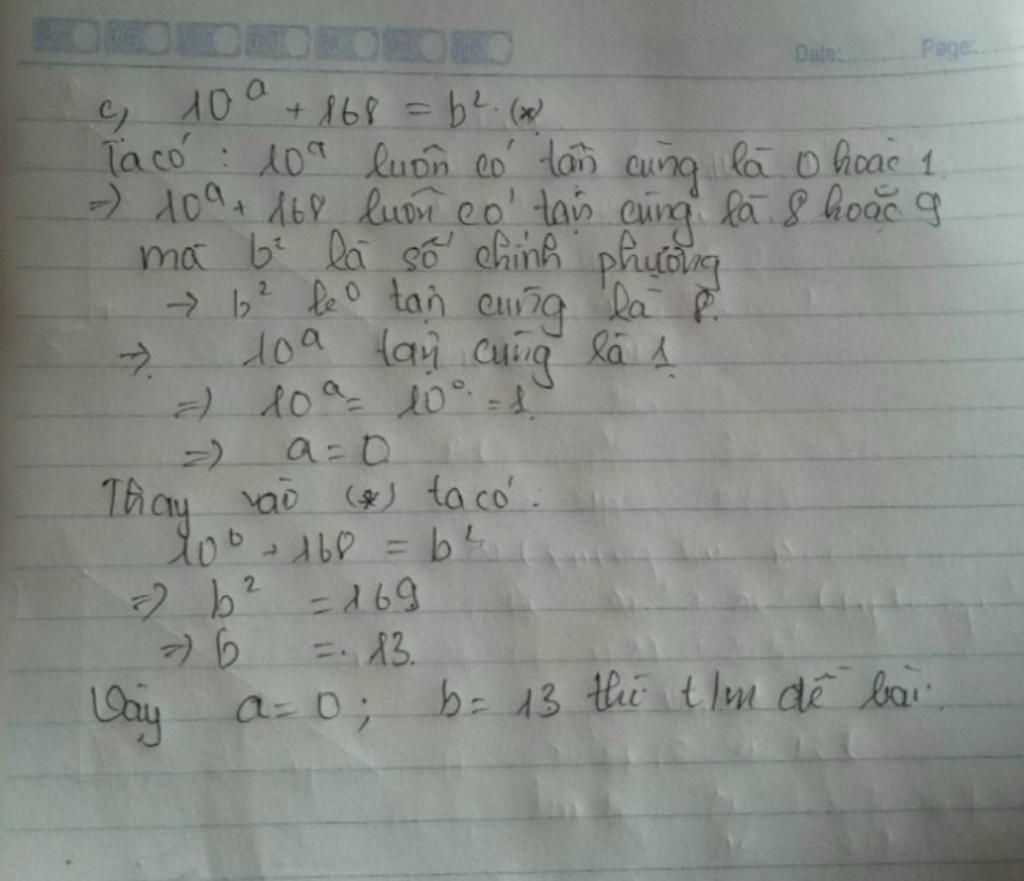 Date:.......... Page:........
c, 10^a + 168 = b². (*)
Ta có : 10^a luôn có tận cùng là 0 hoặc 1
=> 10^a + 168 luôn có tận cùng là 8 hoặc 9
mà b² là số chính phương
-> b² ko tận cùng là 8.
=> 10^a tận cùng là 1.
=> 10^a = 10^0 = 1.
=> a = 0
Thay vào (*) ta có :
10^0 + 168 = b²
=> b² = 169
=> b = 13.
Vậy a = 0 ; b = 13 thì t/m đề bài.